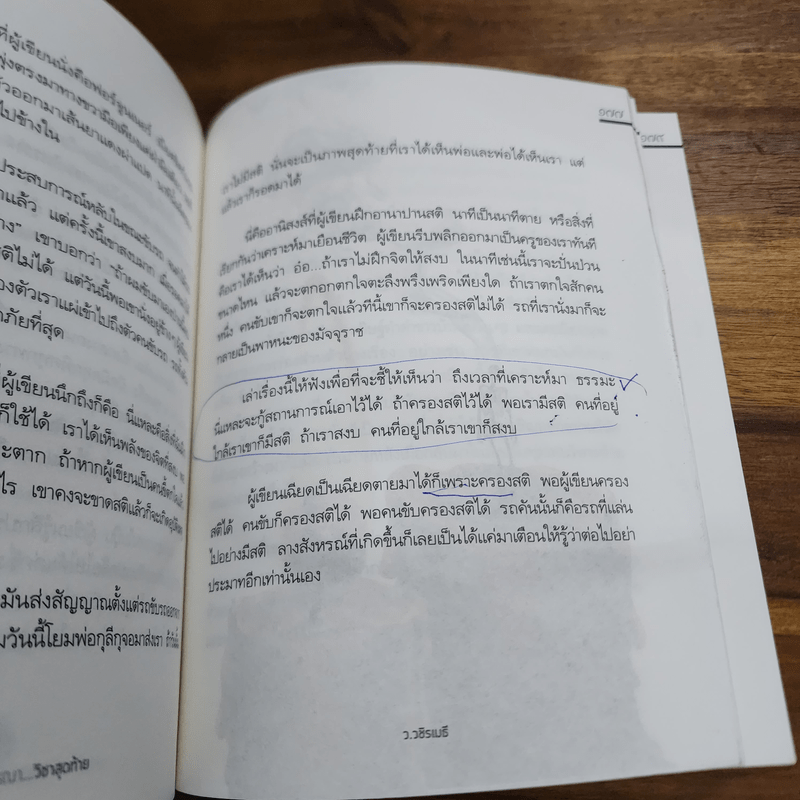 ที่ผู้เขียนนั่งคือฟอร์จูนเนอร์
พุ่งตรงมาทางขวามือ
ออกมาเส้นยาแดงผ่าแปด
ไปข้างใน
ประสบการณ์หลับในขณะขับรถ
แล้ว แต่ครั้งนี้เขาสงบมาก
เขาบอกว่า
สติไม่ได้ แต่วันนี้พอเขานั่งอยู่
ของตัวเราแผ่เข้าไปถึงตัวคนขับรถ
ภัยที่สุด
ผู้เขียนนึกถึงก็คือ นี่แหละคือ
ก็ใช้ได้ เราได้เห็นพลังของจิต
ะตาก ถ้าหากผู้เขียนเป็นคน
ไร เขาคงจะขาดสติแล้วก็จะเกิด
มันส่งสัญญาณตั้งแต่รถขับรถออก
วันนี้โยมพ่อกุลีกุจอมาส่งเรา
วิชาสุดท้าย
๑๗๗
เราไม่มีสติ นั่นจะเป็นภาพสุดท้ายที่เราได้เห็นพ่อและพ่อได้เห็นเรา แต่
แล้วเราก็รอดมาได้
นี่คืออานิสงส์ที่ผู้เขียนฝึกอานาปานสติ นาทีเป็นนาทีตาย หรือสิ่งที่
เรียกกันว่าเคราะห์มาเยือนชีวิต ผู้เขียนรีบพลิกออกมาเป็นครูของเราทันที
คือเราได้เห็นว่า อ๋อ...ถ้าเราไม่ฝึกจิตให้สงบ ในนาทีเช่นนี้เราจะปั่นป่วน
ขนาดไหน แล้วจะตกอกตกใจตะลึงพรึงเพริดเพียงใด ถ้าเราตกใจสักคน
หนึ่ง คนขับเขาก็จะตกใจแล้วทีนี้เขาก็จะครองสติไม่ได้ รถที่เรานั่งมาก็จะ
กลายเป็นพาหนะของมัจจุราช
เล่าเรื่องนี้ให้ฟังเพื่อที่จะชี้ให้เห็นว่า ถึงเวลาที่เคราะห์มา ธรรมะ
นี่แหละจะกู้สถานการณ์เอาไว้ได้ ถ้าครองสติไว้ได้ พอเรามีสติ คนที่อยู่
ใกล้เราเขาก็มีสติ ถ้าเราสงบ คนที่อยู่ใกล้เราเขาก็สงบ
ผู้เขียนเฉียดเป็นเฉียดตายมาได้ก็เพราะครองสติ พอผู้เขียนครอง
สติได้ คนขับก็ครองสติได้ พอคนขับครองสติได้ รถคันนั้นก็คือรถที่แล่น
ไปอย่างมีสติ ลางสังหรณ์ที่เกิดขึ้นก็เลยเป็นได้แค่มาเตือนให้รู้ว่าต่อไปอย่า
ประมาทอีกเท่านั้นเอง
ว.วชิรเมธี